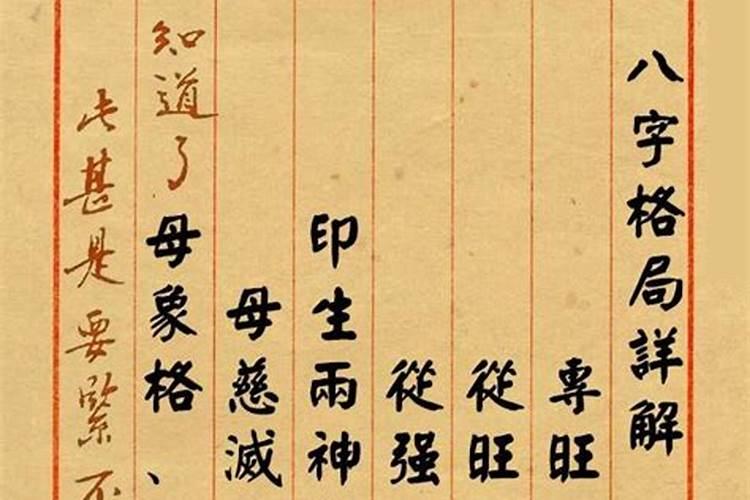 八字格局詳解
専旺
從旺
從强
印生兩神
母慈滅
母象格、
知道了
此甚是要緊不